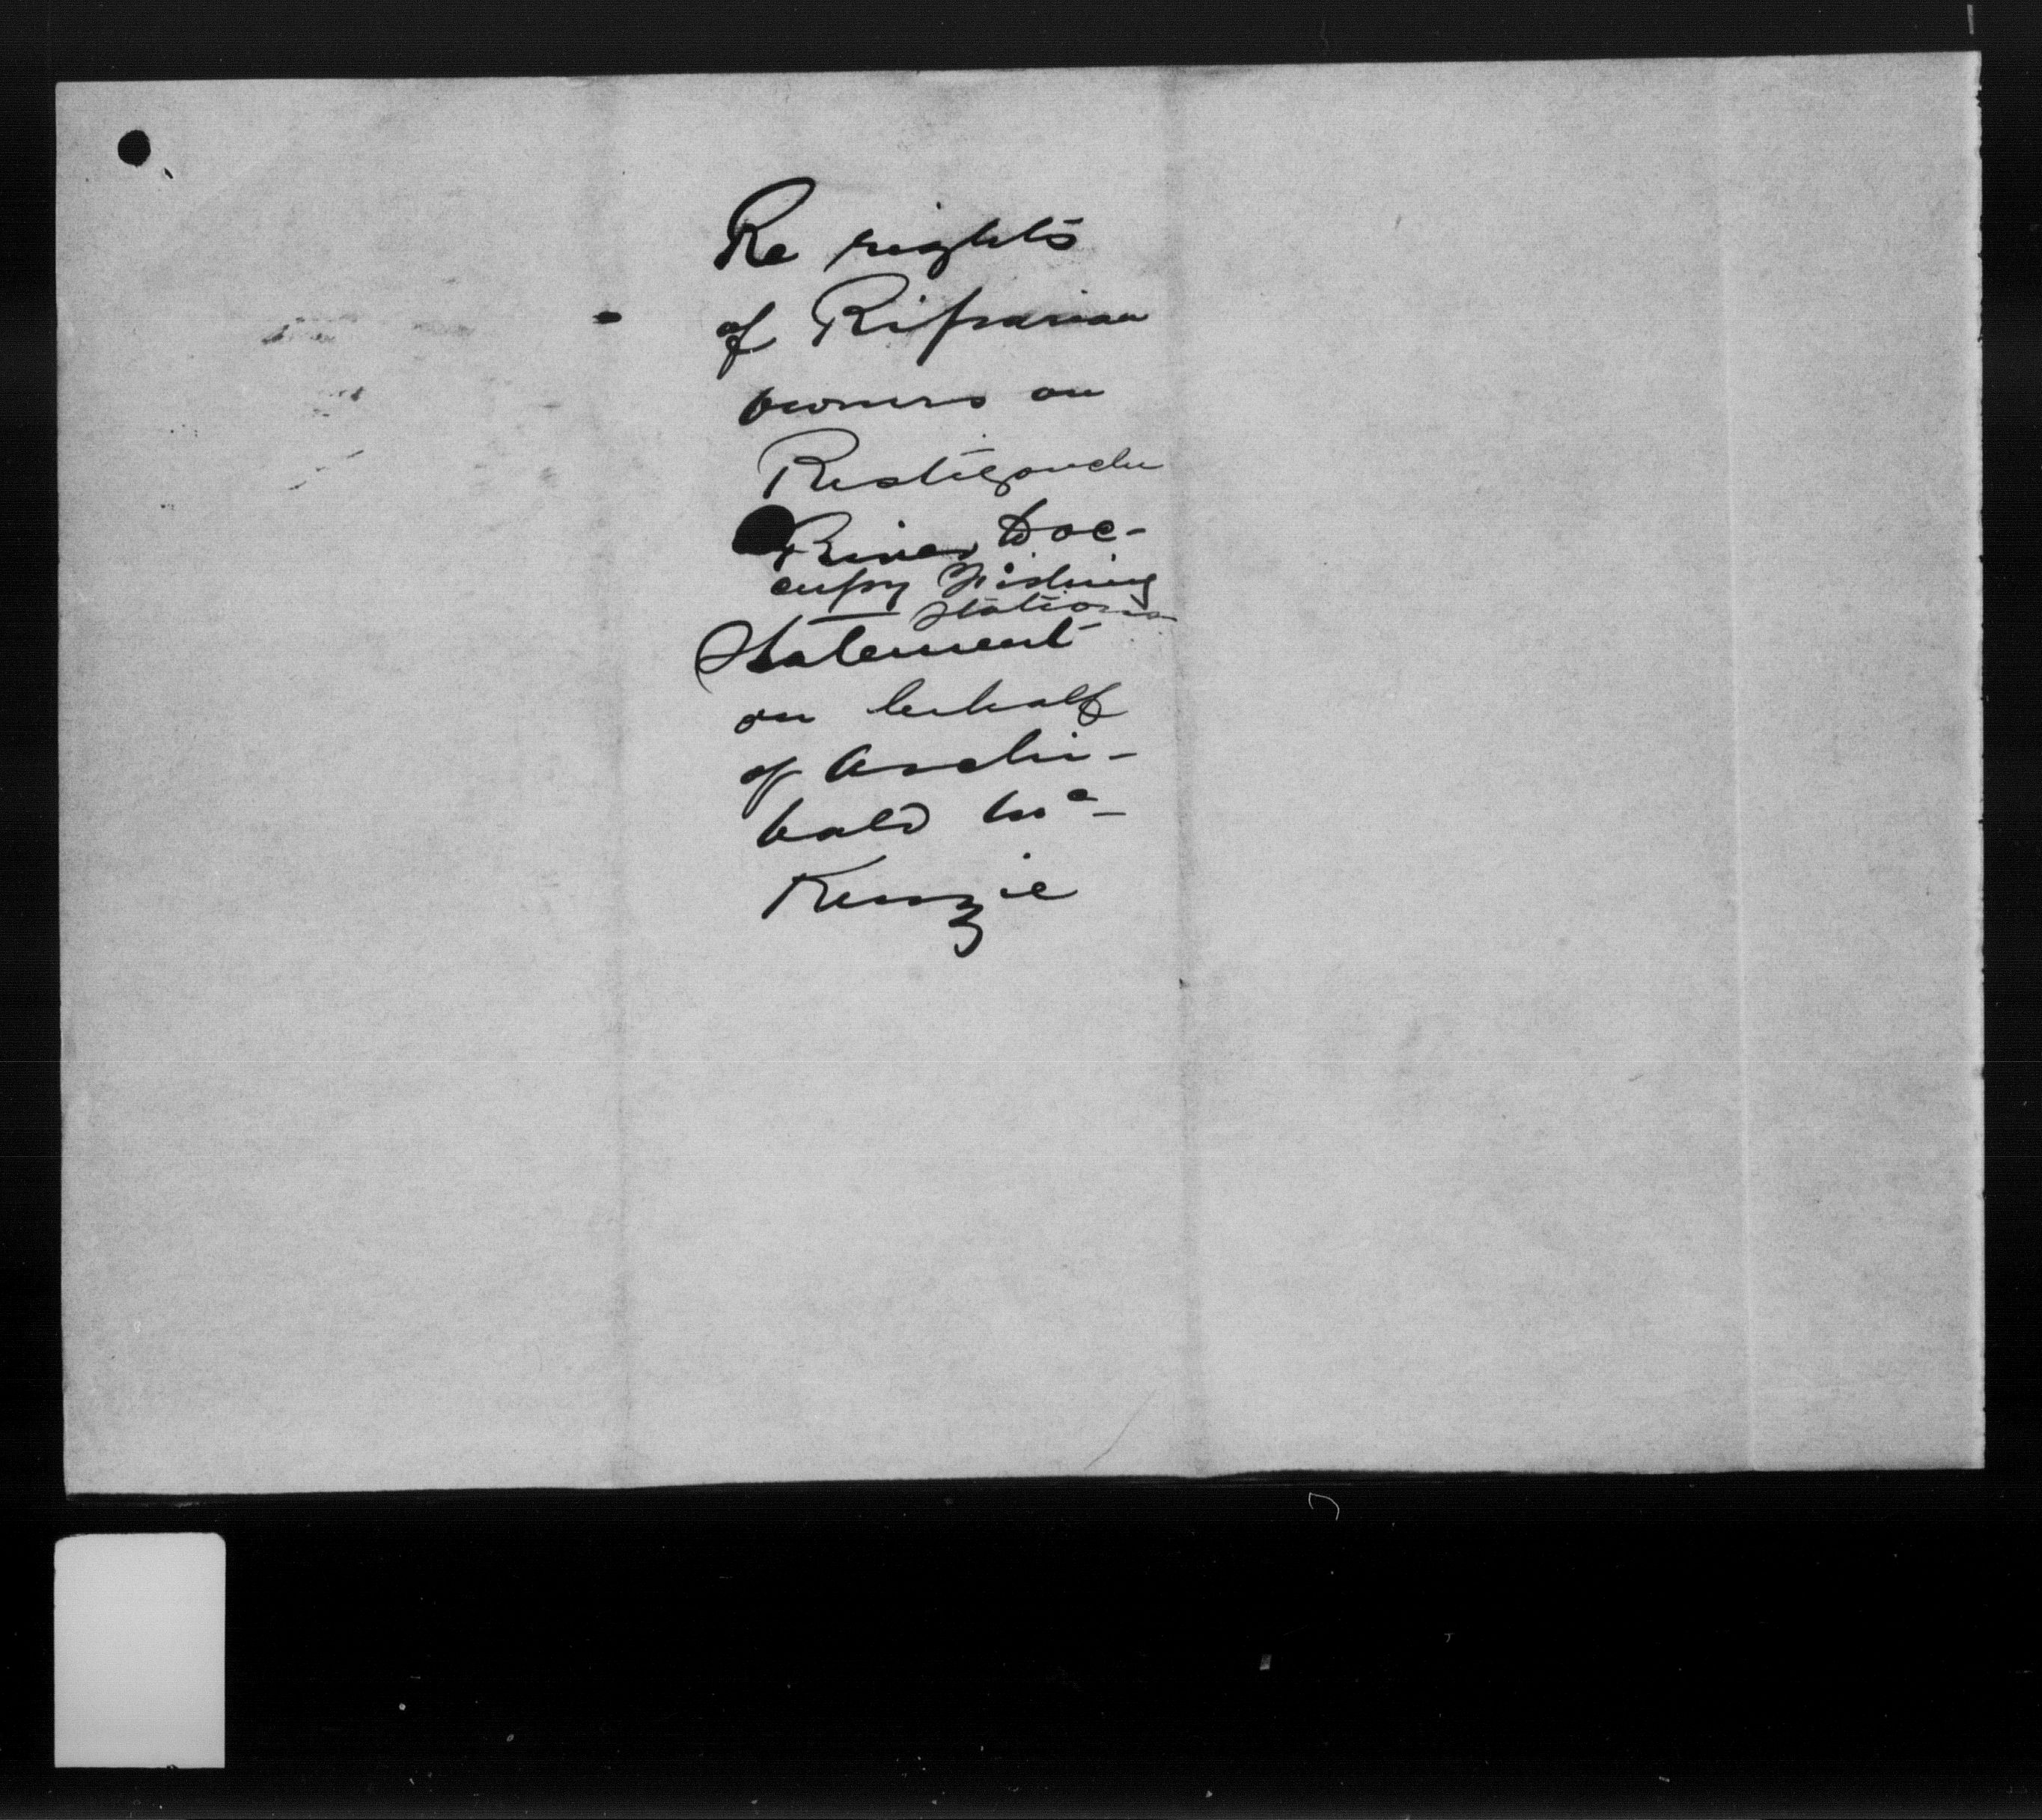 Re rights
of Riparian
owners on
Restigouche
River to oc-
cupy Fishing
Stations
Statement
on behalf
of Archi-
bald Mc-
Kenzie